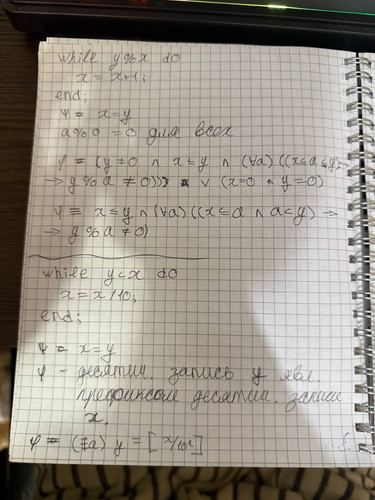 while y%x do
x = x+1;
end;
ψ = x=y
a%0 = 0 для всех
φ = (y≠0 ∧ x≤y ∧ (∀a) ((x≤a≤y) →
→ y%a ≠0))) ∨ (x=0 ∧ y=0)
φ = x≤y ∧ (∀a) ((x≤a ∧ a<y) →
→ y%a ≠0)
while y<x do
x = x/10;
end;
ψ = x=y
φ - десятич. запись y явл.
префиксом десятич. записи
x.
φ = (∃a) y = [x/10ᵃ]